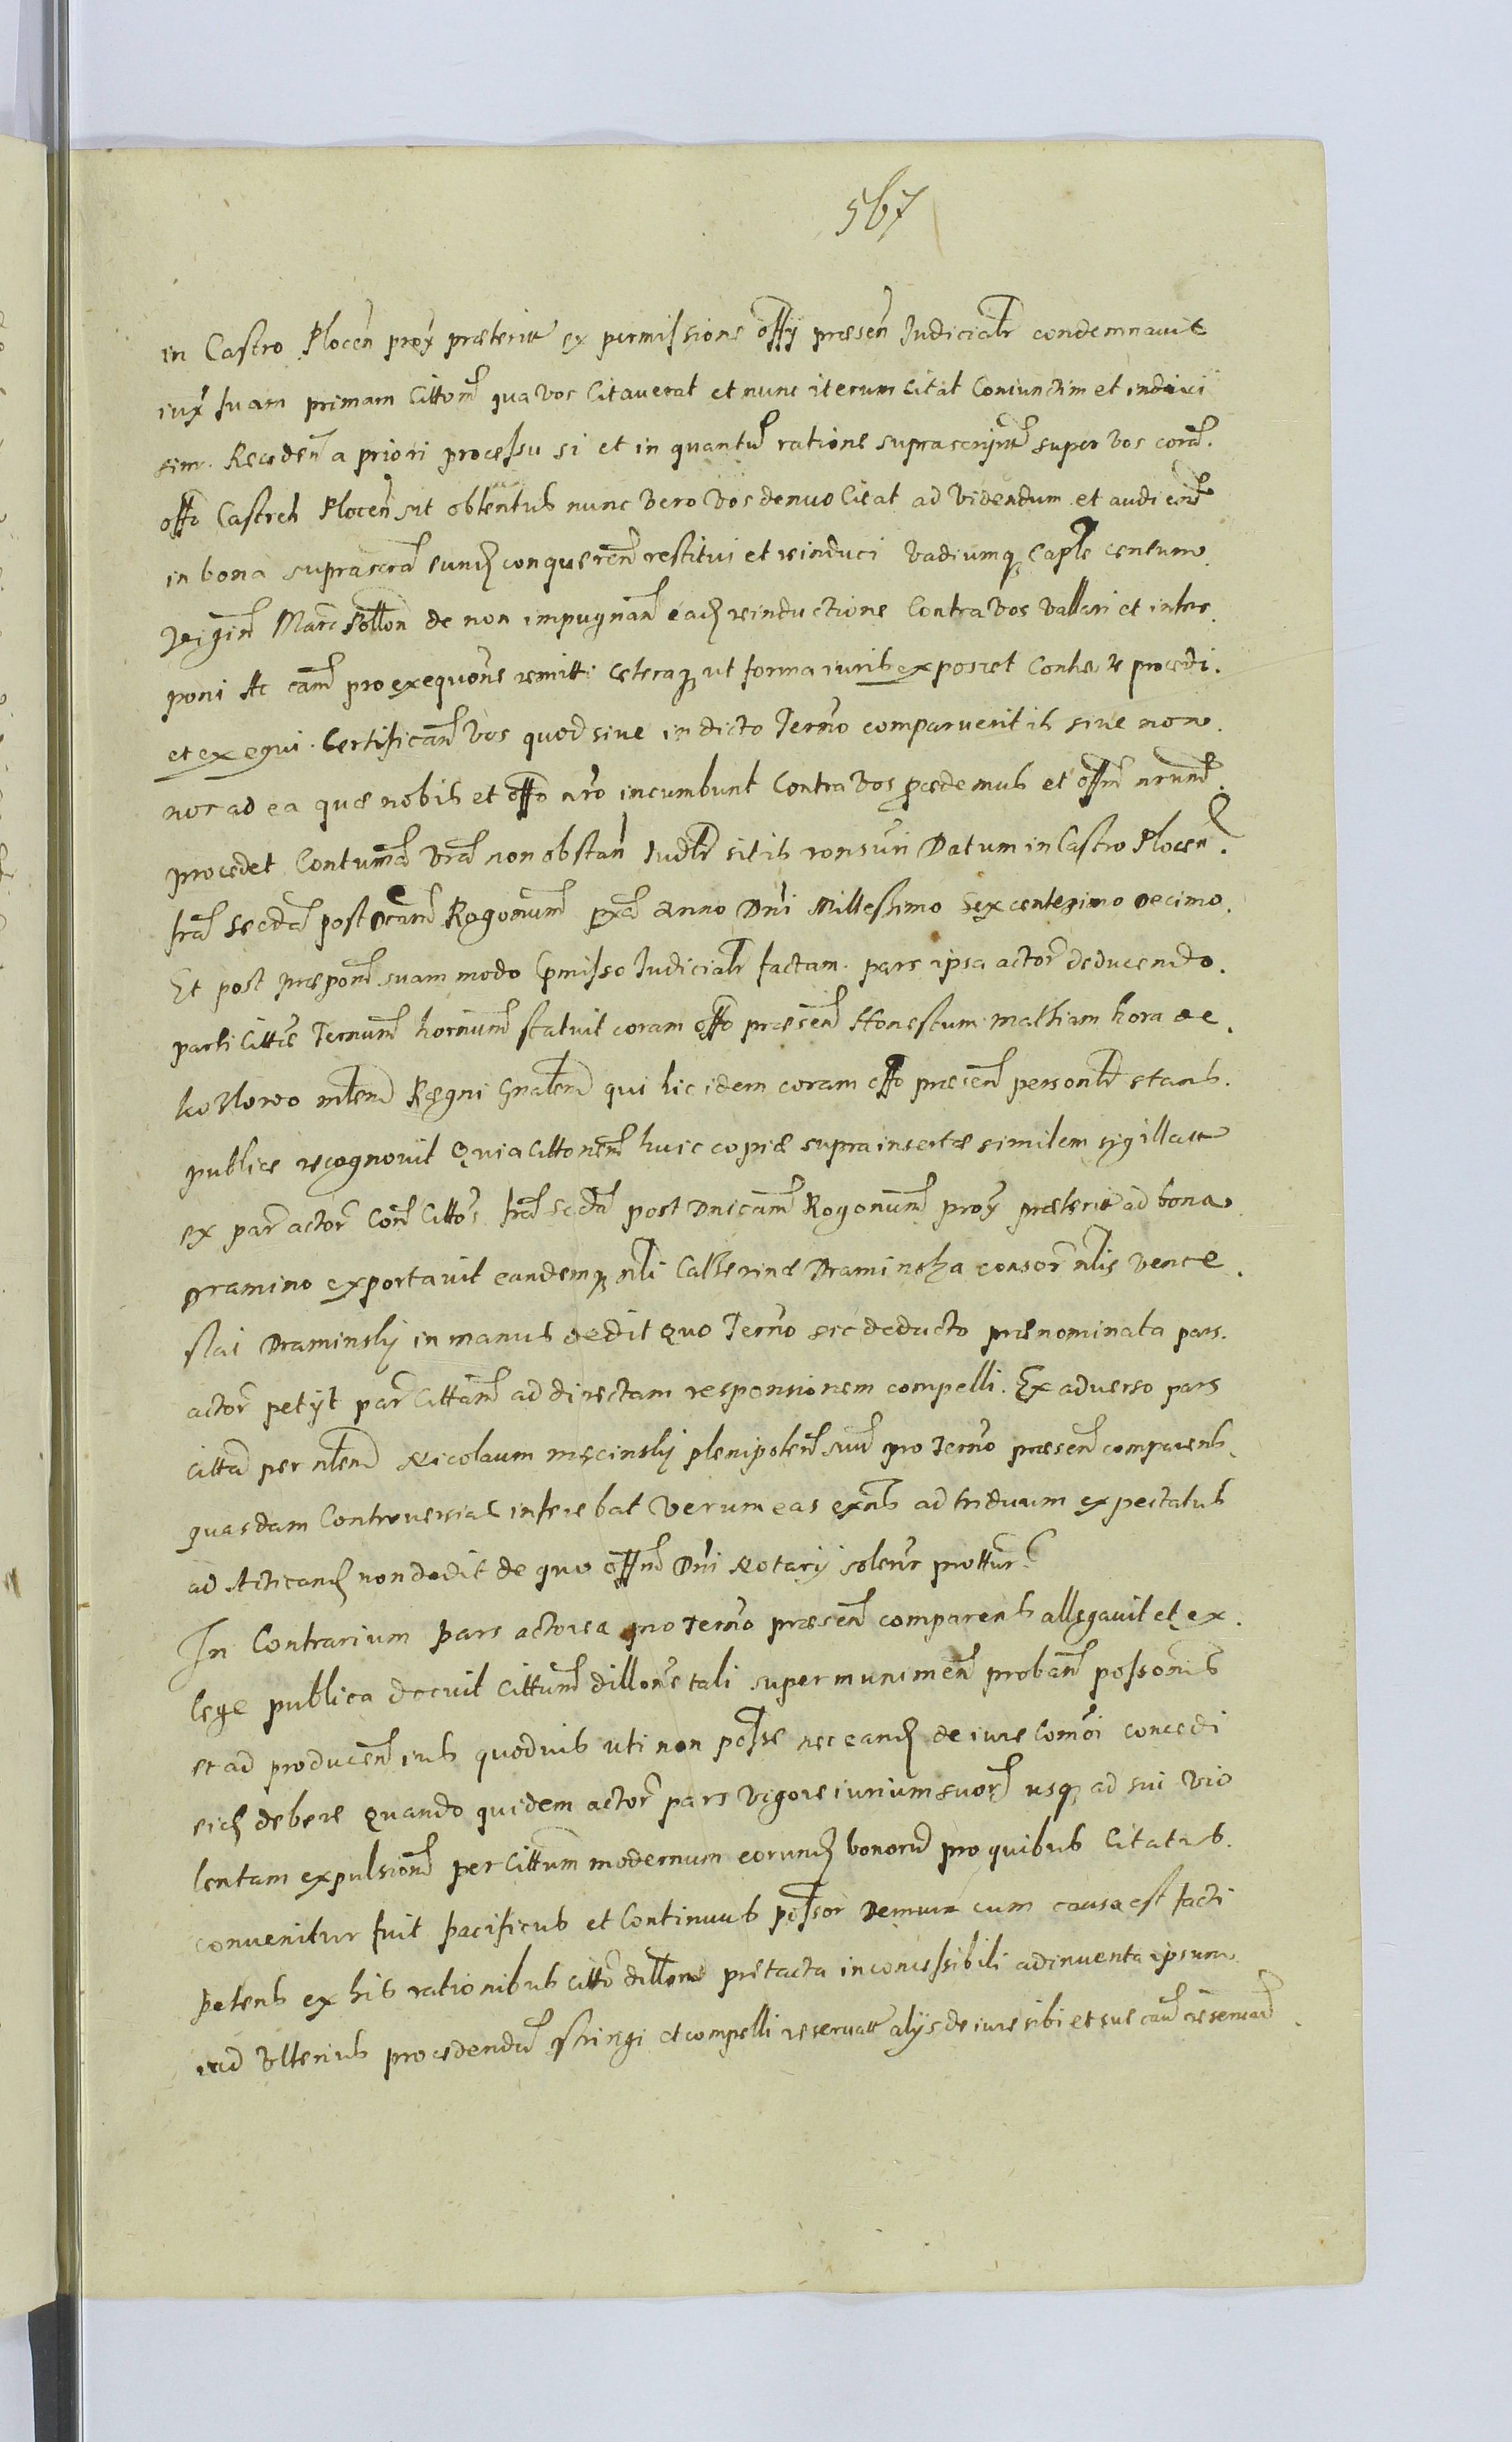 567
in Castro Plocen prox praeterit ex permissione offy praesen Iudicialr condemnavit
iux suam primam Citton qua vos Citaverat et nunc iterum Citat Coniunctim et indivi
sim. Receden a priori processu si et in quantu ratione suprascript super vos cora
offo Castren Plocen sit obtentus nunc vero vos denuo Citat ad videndum et audiend
in bona suprascra eund conqueren restitui et reinduci vadiumq Caple centum
Vigin Marc Pollon de non impugnan ead reinductione Contra vos vallari et inter
poni Ac cam pro exequone remitti ceteraq ut forma iuris exposcet Contra te procedi
et exequi. Certifican vos quod sive in dicto Termo comparueritis sive non
nos ad ea quae nobis et offo nro incumbunt Contra vos procedemus et offm nrum
procedet Contuma vra non obstan Iudlr sitis responsuri Datum in Castro Plocen
fra Secda post Dcam Rogonum pxa Anno Dni Millessimo Sexcentesimo Decimo
Et post praepon suam modo pmisso Iudicialr factam pars ipsa actor deducendo
parti Citta Termum hornum statuit coram offo praesen Honestum Mathiam hora de
kozlowo mlem Regni Gnalem qui hic idem coram offo praesen personlr stans
publice recognovit Quia Cittonem huic copiae supra insertae similem sigillatt
ex par actor Con Cittos fra Scda post Dnicam Rogonum prox praeterit ad bona
Dramino exportavit eandemq nli Catherinae Draminska consor nlis Vence
slai Draminsky in manus dedit Quo Termo sic deducto praenominata pars
actor petyt par Cittam ad directam responsionem compelli. Ex adverso pars
Citta per nlem Nicolaum Mscinsky plenipoten suu pro Termo praesen comparens
quasdam Controversias inferebat Verum eas exnb ad triduum expectatus
ad Acticand non dedit de quo offm Dni Notary solenr prottur
In Contrarium pars actorea pro Termo praesen comparens allegavit et ex
lege publica docuit Cittum dillone tali super munimen proban possonis
et ad producen ius quodvis uti non posse nec eand de iure Comoi concedi
eid debere Quando quidem actor pars vigore iurium suor usq ad sui vio
lentam expulsion per Cittum modernum eorund bonoru pro quibus Citatus
convenitur fuit pacificus et Continuus possor Demum cum causa est facti
petens ex his rationibus Citto dillone pretacta inconcessibili adinventa ipsum
ad Ulterius procedendu stringi et compelli reservatt alys de iure sibi et suae cau reservan